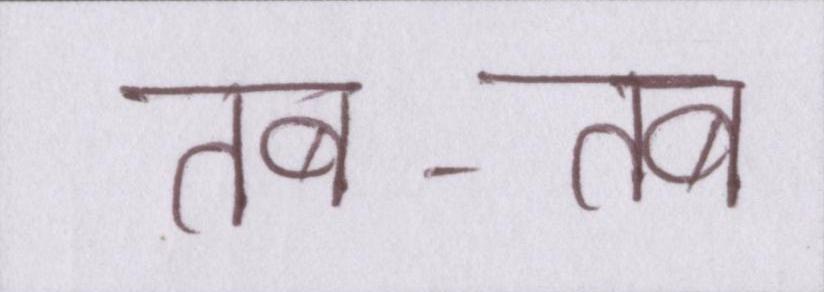 तब - तब